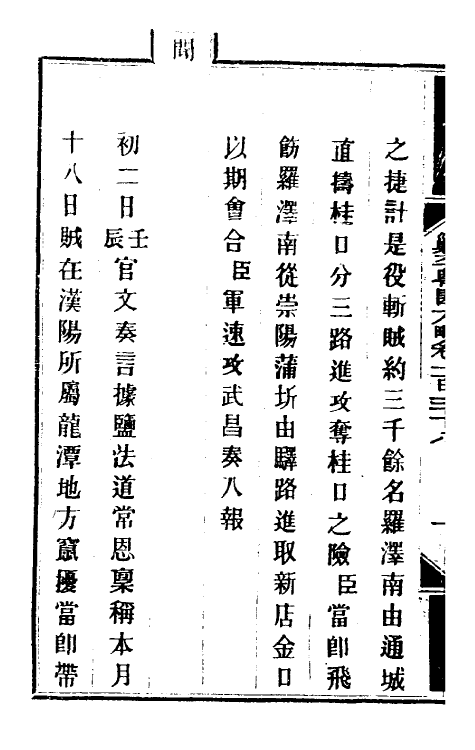 之捷計是役斬賊約三千餘名羅澤南由通城
直擣桂口分三路進攻奪桂口之險臣當卽飛
飭羅澤南從崇陽蒲圻由驛路進取新店金口
以期會合臣軍速攻武昌奏入報
聞
初二日壬辰官文奏言據鹽法道常恩稟稱本月
十八日賊在漢陽所屬龍潭地方竄擾當卽帶